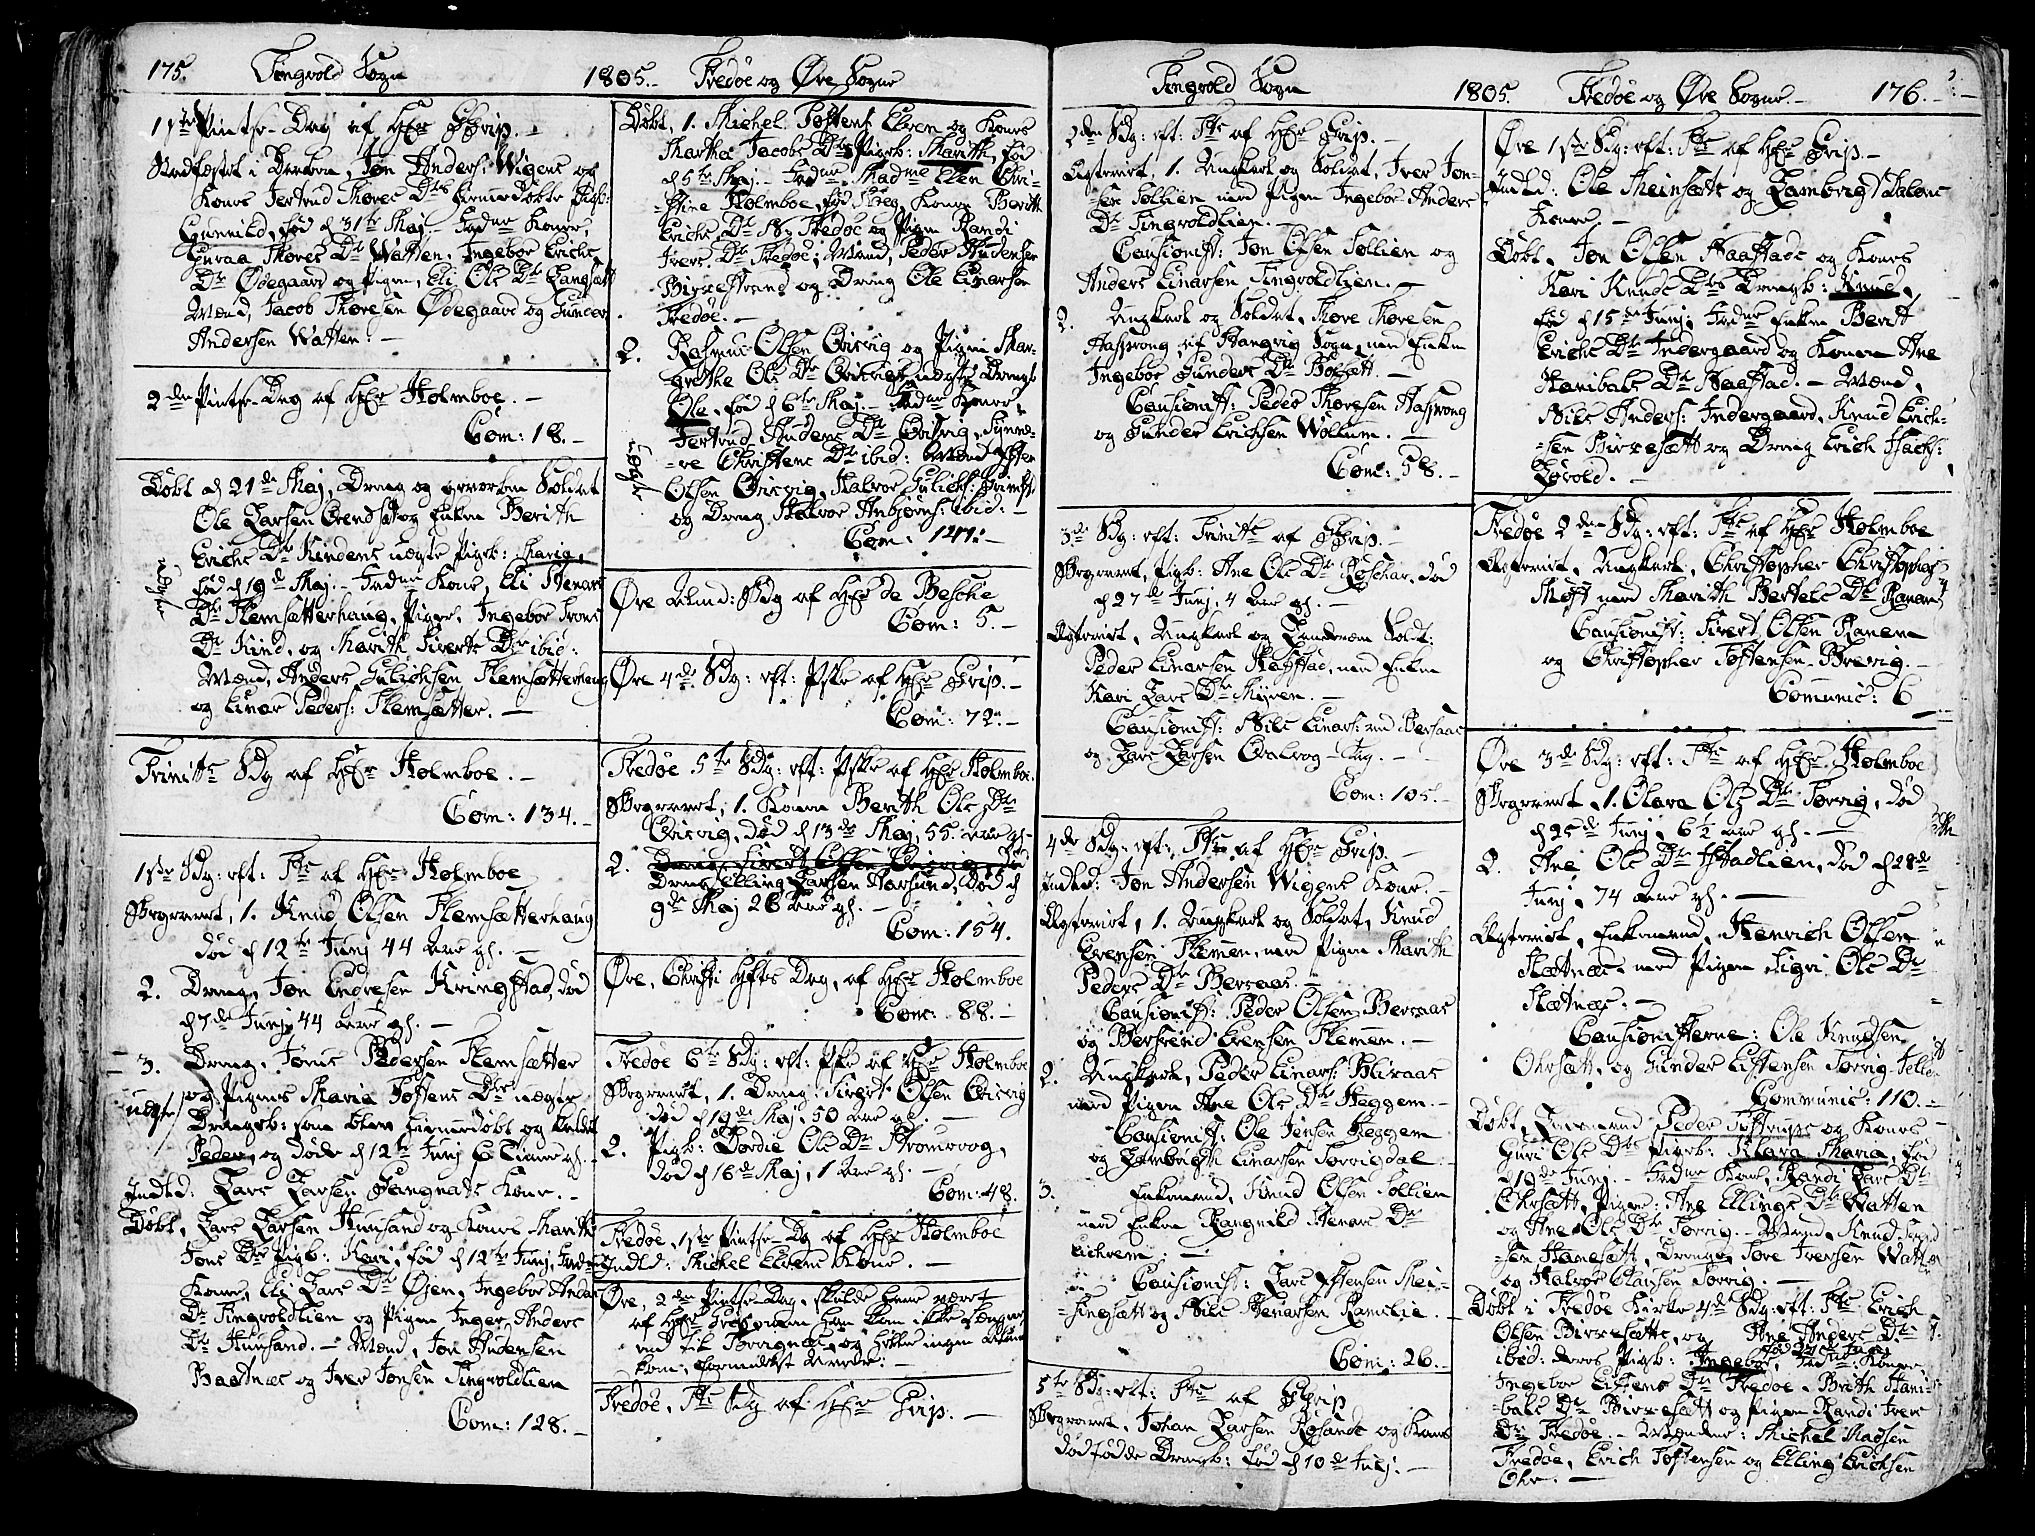 175. Tingvold Sogn
1ste Pintse-Dag af Hr Grip.
Stadfæstet i Daaben, Jon Anders: Wigens og
Kones Jertrud Thores Dtrs hiemmedøbte Pigb:
Gunnild, fød d 31te Maj. Fadne Kone,
Guraa Thores Dr Watten, Ingebor Erichs
Dr Ødegaard og Pigen, Eli Ols Dr Langsæt
Mænd, Jacob Thoresen Ødegaard og Gunder
Andersen Watten.
2den Pintse-Dag af Hr Holmboe.
Com: 18.
Døbt d 21de Maj, Dreng og Soldat
Ole Larsen og Enken Berith
Erichs Dr Kindens uægte Pigb: Marig,
fød d 19d Maj. Fadne Kone, Eli Steners
Dr Flemsætterhaug, Piger, Ingebor Ivers
Dr Kind, og Marith Siverts Dr ibid:
Mænd, Anders Gulichsen Flemsætterhaug
og Einar Peders: Flemsætter.
uægte
Trinitts Sdg af Hr Holmboe.
Com: 134.
1ste Sdg: eft: Tts af Hr Holmboe
Begravet, 1. Knud Olsen Flemsætterhaug
død d 12te Junj 44 Aar gl.
2. Dreng, Jon Endresen Kringstad, død
d 7de Junj 44 aar gl.
3. Dreng, Jonus Pedersen Flemsætter
og Pigens Maria Tostens Dtrs uægte
Drengb: som blev hiemmedøbt og kaldet
Peder, og døde d 12te Junj 6 Timer gl.
uægte
Indled: Lars Larsen Gangnats Kone.
Døbt, Lars Larsen Huusand og Kones Marith
Jons Dtr Pigb: Kari, fød d 12te Junj, Fadne
Kone, Eli Lars Dr Øien, Ingebor Anders
Dr Tingvoldlien og Pigen Inger Anders
Dr Huusand. Mænd, Jon Audensen
Baatnes og Iver Jonsen Tingvoldlien
Com: 128.
1805. Fredøe og Øre Sogne
Døbt, 1. Michel Tostens Elven og Kones
Marthe Jacobs Dtrs Pigb: Marith, fød
d 5te Maj. Fadne, Madme Elen Chri-
-stine Holmboe, Kone Berith
Erichs Dr Fredøe og Pigen Randi
Ivers Dtr Fredøe, Mænd, Peder Audensen
Birkestrand og Dreng Ole Einarsen
Fredøe.
2. Rasmus Olsen Qvisvig og Pigen Mar-
grethe Ols Dr Qvisvig uægte Drengb
Ole, fød d 6te Maj. Fadne Kone,
Jertrud Anders Dr Qvisvig, Synne-
-ve Christens Dr ibid: Mænd,
Olsen Qvisvig, Halvor Gulichs:
og Dreng Halvor Anbjørns: ibid:
Com: 147.
uægte
Øre Alm: Sdg af Hr de Besche
Com: 5.
Øre 4de Sdg: eft: Pske af Hr Grip.
Com: 72.
Fredøe 5te Sdg: eft: Pske af Hr Holmboe.
Begravet, 1. Konen Berith Ols Dr
Qvisvig, død d 13de Maj, 55 aar gl.
2. Dreng Sivert Olsen Qvisvig
Dreng Elling Larsen Aarsund, død d
9de Maj 26 aar gl.
Com: 154.
Øre, Christi Hfts Dag, af Hr Holmboe
Com: 88.
Fredøe 6te Sdg: eft: Pske af Hr Holmboe
Begravet, 1. Dreng Sivert Olsen Qvisvig
død d 19de Maj, 50 Aar gl.
2. Pigb: Dordie Ols Dr Stromvog,
død d 16de Maj, 1 Aar gl.
Com: 48.
Fredøe, 1ste Pintse-Dg af Hr Holmboe
Indled: Michel Elvens Kone.
Øre, 2den Pintse-Dag, skulde have været
af Hr Grip, men han kom ikke længer
end til Torvignes, og holdt ingen
Com: formedelst
Fredøe, Tts Sdg af Hr Grip.
Tingvold Sogn
2den Sdg: eft: Tts af Hr Grip.
Egteviet, 1. Ungkarl og Soldat, Iver Jon-
sen Sollien med Pigen Ingebor Anders
Dr Tingvoldlien.
Causionist: Jon Olsen Sollien og
Anders Einarsen Tingvoldlien.
2. Ungkarl og Soldat, Thore Thoresen
Aasprong af Stangvig Sogn, med Enken
Ingebor Gunders Dr Boksett.
Causionist: Peder Thoresen Aasprong
og Gunder Erichsen Wollum.
Com: 58.
3de Sdg: eft: Trinitts af Grip.
Begravet, Pigb: Ane Ols Dr Roskar, død
d 27de Junj, 4 Aar gl.
Egteviet, Ungkarl og Landværn Soldt:
Peder Einarsen Stafstad, med Enken
Kari Lars Dr Myren.
Causionist: Nils Einars: ved Bersaas
og Lars Larsen
Com: 105.
4de Sdg: eft: Tts af Hr Grip.
Indled: Jon Andersen Wigens Kone.
Egteviet, 1. Ungkarl og Soldat, Knud
Evensen Flemmen, med Pigen Marith
Peders Dr Bersaas.
Causionist: Peder Olsen Bersaas
og Bersvend Evensen Flemen.
2. Ungkarl, Peder Einars: Blixaas
med Pigen Ane Ols Dr Heggem.
Causionist: Ole Jensen Heggem
og Lambrigt Einarsen Torvigdal.
3. Enkemand, Knud Olsen Sollien
med Enken Rangnild Stenars Dr
Eichrem.
Causionist: Lars Mei-
singsætt og Nils Stenarsen Ramlie.
Com: 26.
5te Sdg: eft: Tts af Grip
Begravet, Johan Larsen Rosands og Kones
dødfødde Drengb: fød d 10de Julj.
1805. Fredøe og Øre Sogne. 176.
Øre 1ste Sdg: eft: Tts af Hr Grip.
Indled: Ole Meinsætt og Lambrigt Dalens
Koner.
Døbt, Jon Olsen Staffads og Kones
Kari Knuds Dtrs Drengb: Knud,
fød d 15de Junj, Fadne Enken Berit
Erichs Dtr Indergaard og Konen Ane
Hanibals Dtr Staaftad. Mænd,
Nils Anders: Indergaard, Knud Erich-
-sen Birkesætt og Dreng Erich Isachs:
Løvold.
Fredøe 2den Sdg: eft: Tts af Hr Holmboe
Egteviet, Ungkarl, Christopher Christophers
Møst med Marith Bertels Dr Ranem
Causionist: Sivert Olsen Ranem
og Christopher Tostensen Brevig.
Comunic: 6
Øre 3de Sdg: eft: Tts af Hr. Holmboe
Begravet, 1. Olava Ols Dr Torvig, død
d 25de Junj, 6½ aar gl.
2. Ane Ols Dr Stadlien, død d 28de
Junj, 74 aar gl.
Egteviet, Enkemand, Henrich Olsen
Flætnæs med Pigen Sigri Ols Dr
Flætnæs.
Causionisterne: Ole Knudsen
Ohrsætt, og Gunder Estensen Torvig
Communic: 110.
Døbt, Peder og Kones
Guri Ols Dtrs Pigb: Klara Maria, fød
d 19de Junj. Fadne Kone, Randi Lars Dr
Ohrsætt, Piger: Ane Ellings Dr Watten
og Ane Ols Dr Torvig. Mænd, Knud
-sen Hanesætt, Drenge, Tore Iversen Watten
og Halvor Clausen Torvig.
Døbt i Fredøe Kirke 4de Sdg: eft: Tts Erich
Olsen Birkesætts, og Ane Anders Dtr
ibid: deres Pigb: Ingebor, Fadne: Kone,
Ingebor Estens Dr Fredøe, Brith Hani-
-bals Dr Birkesætt og Pigen Randi Ivers
Dr Fredøe. Mændene: Michel Madsen
Fredøe, Erich Tostensen og Elling Erichsen
Ohr.